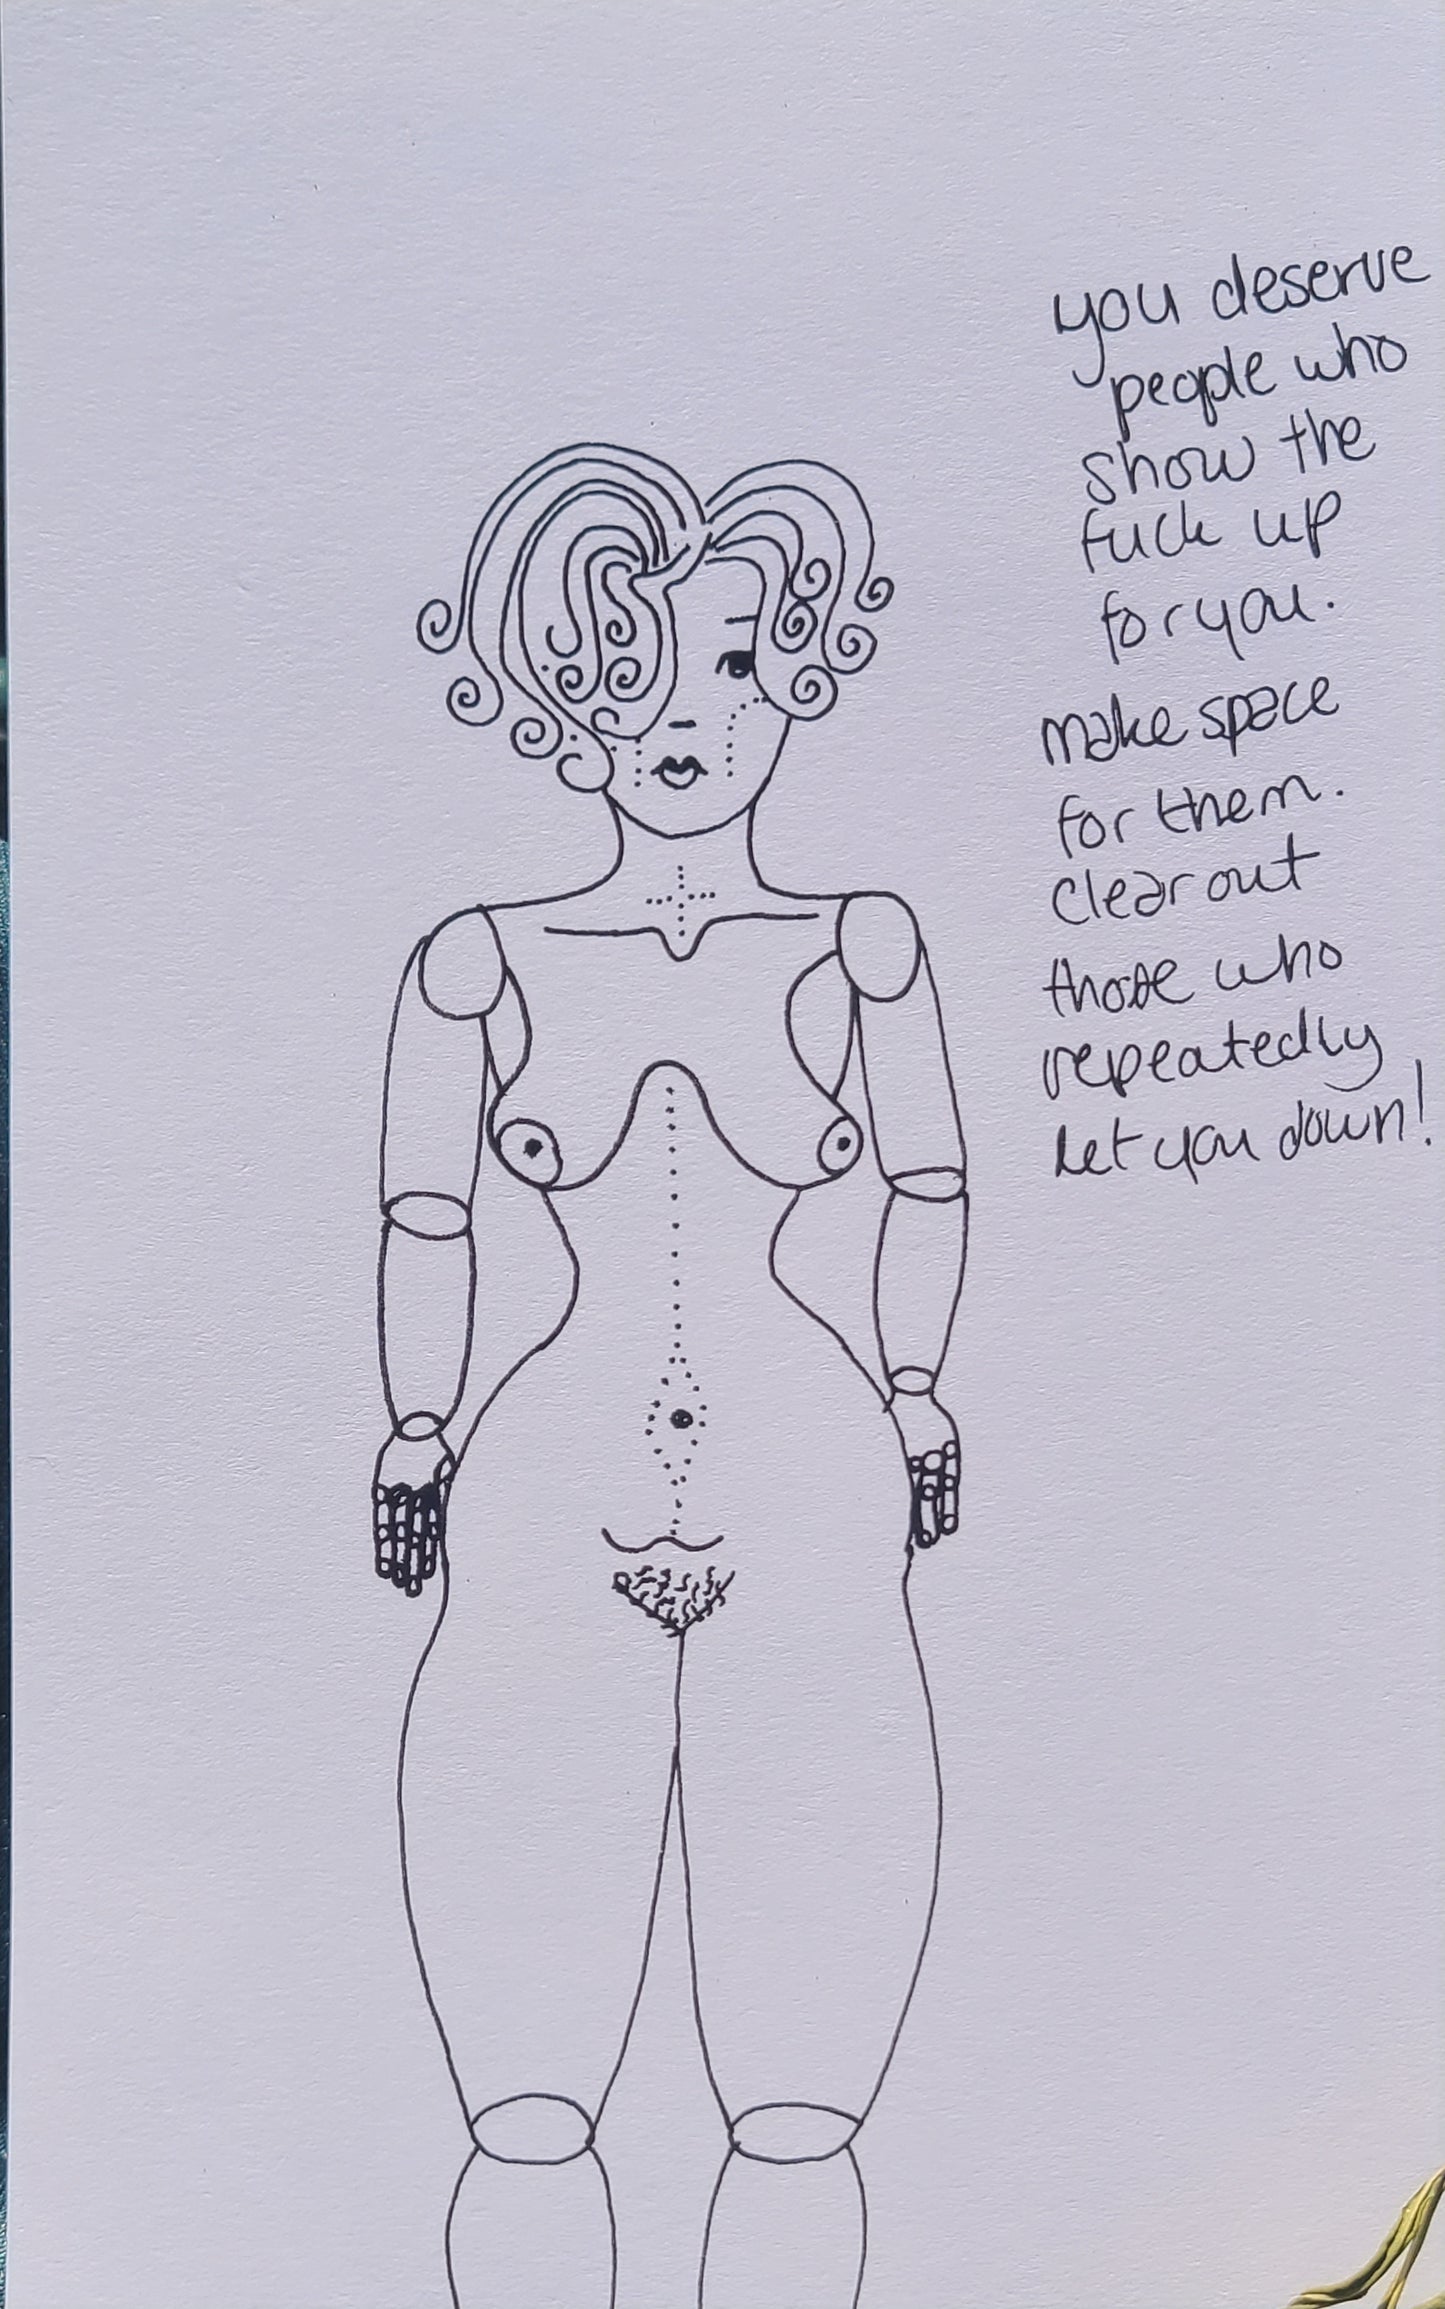 you deserve
people who
show the
fuck up
for you.
make space
for them.
clear out
those who
repeatedly
let you down!